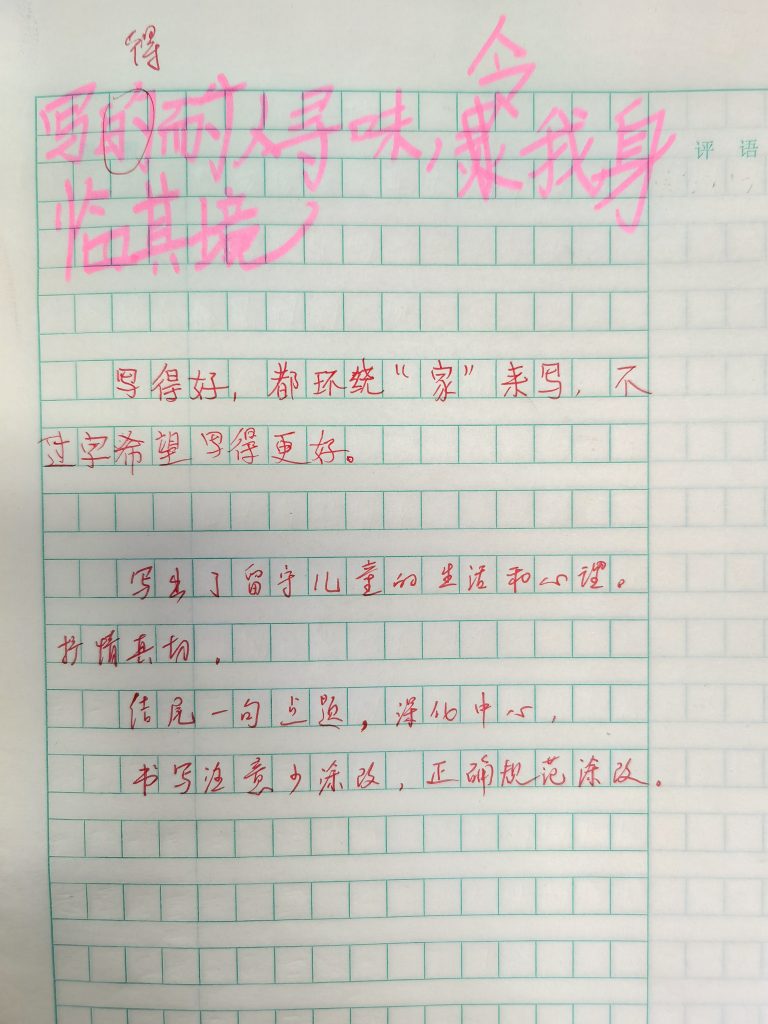 得
令
写的耐人寻味,我身
临其境
评语
写得好，都环绕“家”来写，不
过字希望写得更好。
写出了留守儿童的生活和心理。
抒情真切。
结尾一句点题，深化中心，
书写注意少涂改，正确规范涂改。